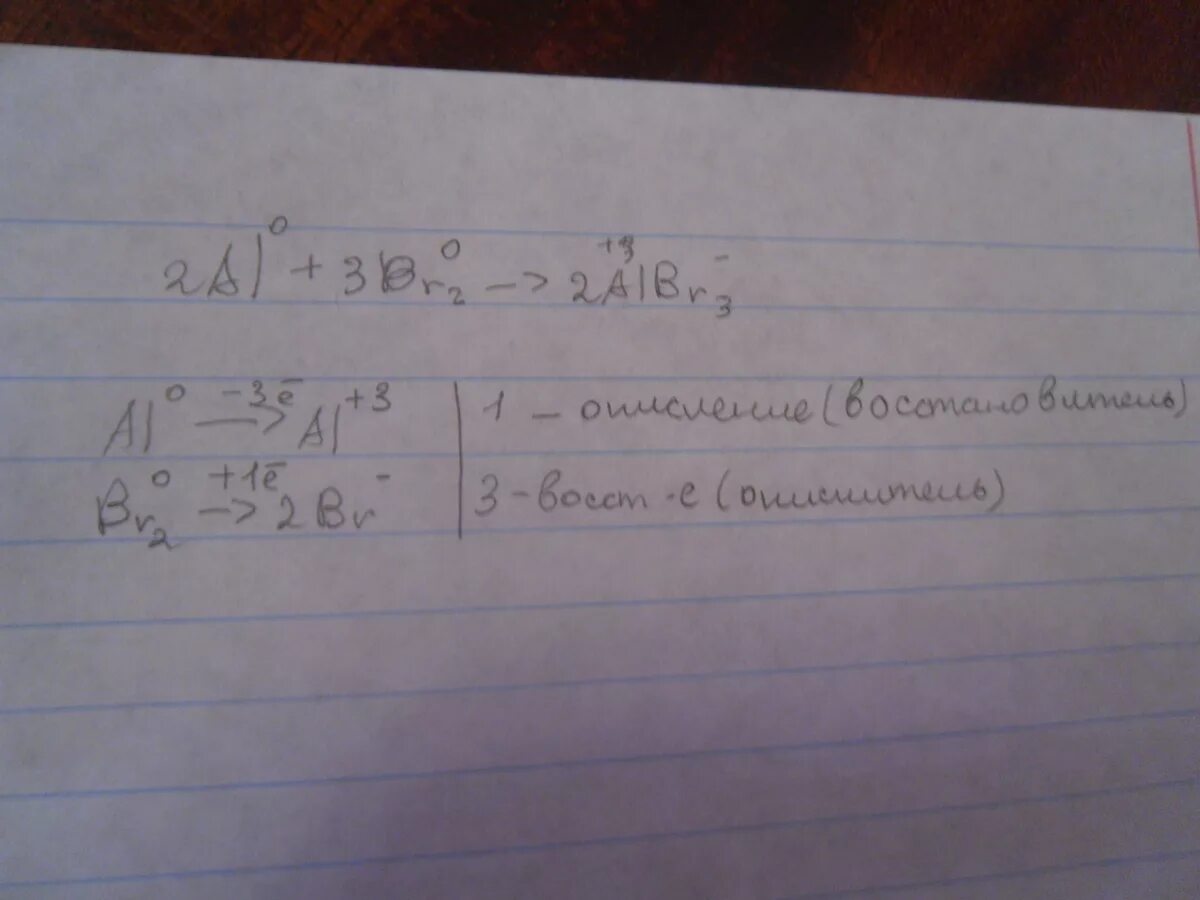 2Al⁰ + 3Br₂⁰ -> 2Al⁺³Br₃⁻
Al⁰ -3ē -> Al⁺³ | 1 - окисление (восстановитель)
Br₂⁰ +1ē -> 2Br⁻ | 3 - восст-е (окислитель)